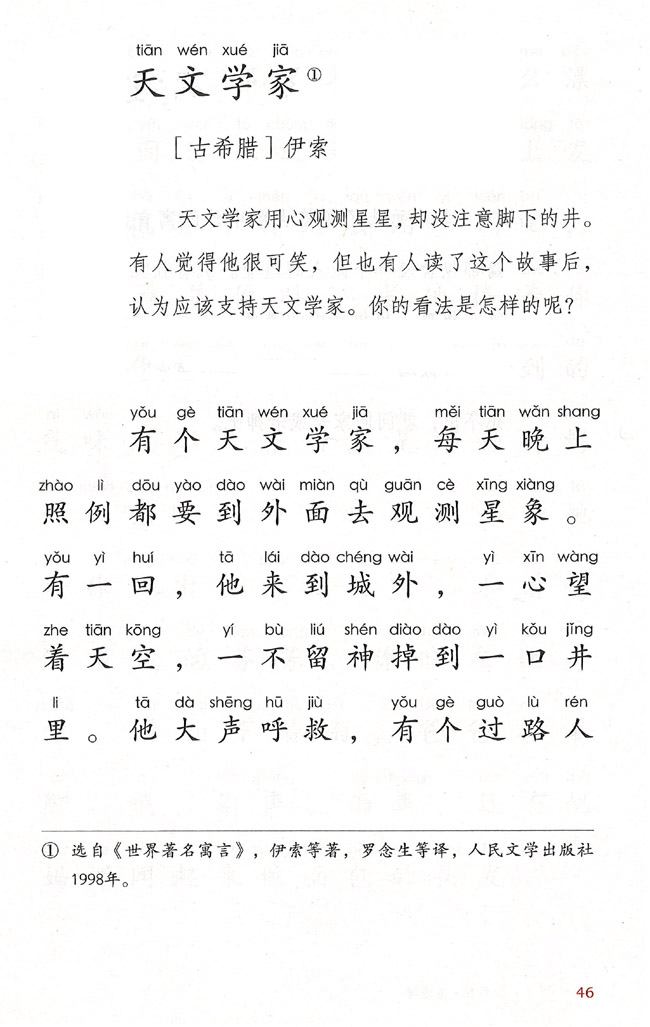 tiān wén xué jiā
天文学家①
［古希腊］伊索
天文学家用心观测星星，却没注意脚下的井。
有人觉得他很可笑，但也有人读了这个故事后，
认为应该支持天文学家。你的看法是怎样的呢？
yǒu gè tiān wén xué jiā měi tiān wǎn shang
有个天文学家，每天晚上
zhào lì dōu yào dào wài miàn qù guān cè xīng xiàng
照例都要到外面去观测星象。
yǒu yì huí tā lái dào chéng wài yì xīn wàng
有一回，他来到城外，一心望
zhe tiān kōng yí bù liú shén diào dào yì kǒu jǐng
着天空，一不留神掉到一口井
li tā dà shēng hū jiù yǒu gè guò lù rén
里。他大声呼救，有个过路人
① 选自《世界著名寓言》，伊索等著，罗念生等译，人民文学出版社
1998年。
46